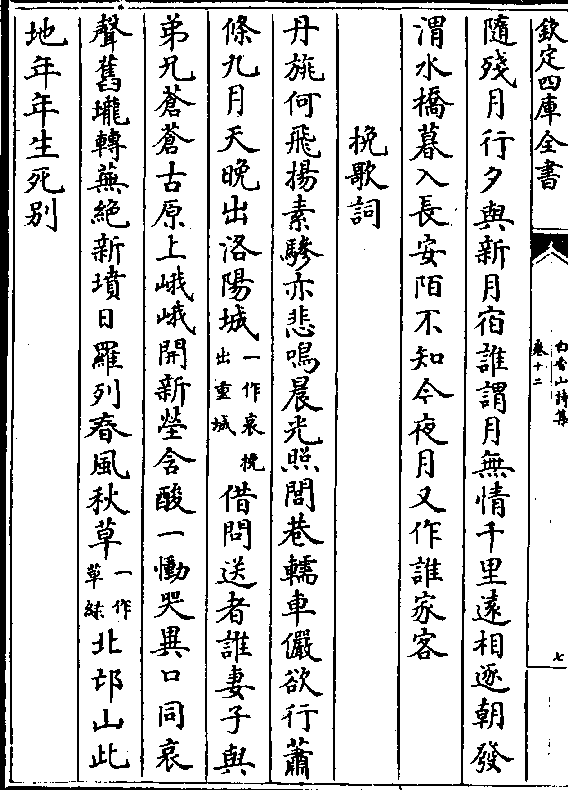 欽定四庫全書
白香山詩集
卷十二
七
隨殘月行夕與新月宿誰謂月無情千里遠相逐朝發
渭水橋暮入長安陌不知今夜月又作誰家客
挽歌詞
丹旐何飛揚素驂亦悲鳴晨光照閭巷轜車儼欲行蕭
條九月天晚出洛陽城一作哀挽出重城借問送者誰妻子與
弟兄蒼蒼古原上峨峨開新塋含酸一慟哭異口同哀
聲舊壠轉蕪絕新墳日羅列春風秋草一作草綠北邙山此
地年年生死别